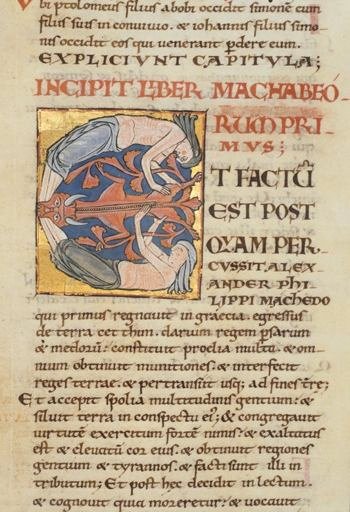 bi ptolomeus filius abobi occidit simonē cum
filiis suis in conuiuio. & iohannis filius simo-
nis occidit eos qui venerant pdere eum.
EXPLICIVNT CAPITVLA;
INCIPIT LIBER MACHABEÓ-
RUM PRI-
MVS;
T FACTŪ
EST POST
QVAM PER-
CVSSIT ALEX-
ANDER PHI-
LIPPI MACHEDO
qui primus regnauit in graecia. egressus
de terra cethim. darium regem psarum
& medorū: constituit proelia multa. & om-
nium obtinuit munitiones. & interfecit
reges terrae. & pertransiit usq; ad fines tr̄e;
Et accepit spolia multitudinis gentium: &
siluit terra in conspectu ei; & congregauit
uirtutē exercitum fortē nimis. & exaltatus
est & eleuatū cor eius. & obtinuit regiones
gentium & tyrannos. & facti sunt illi in
tributum; Et post hec decidit in lectum.
& cognouit quia moreretur. & uocauit